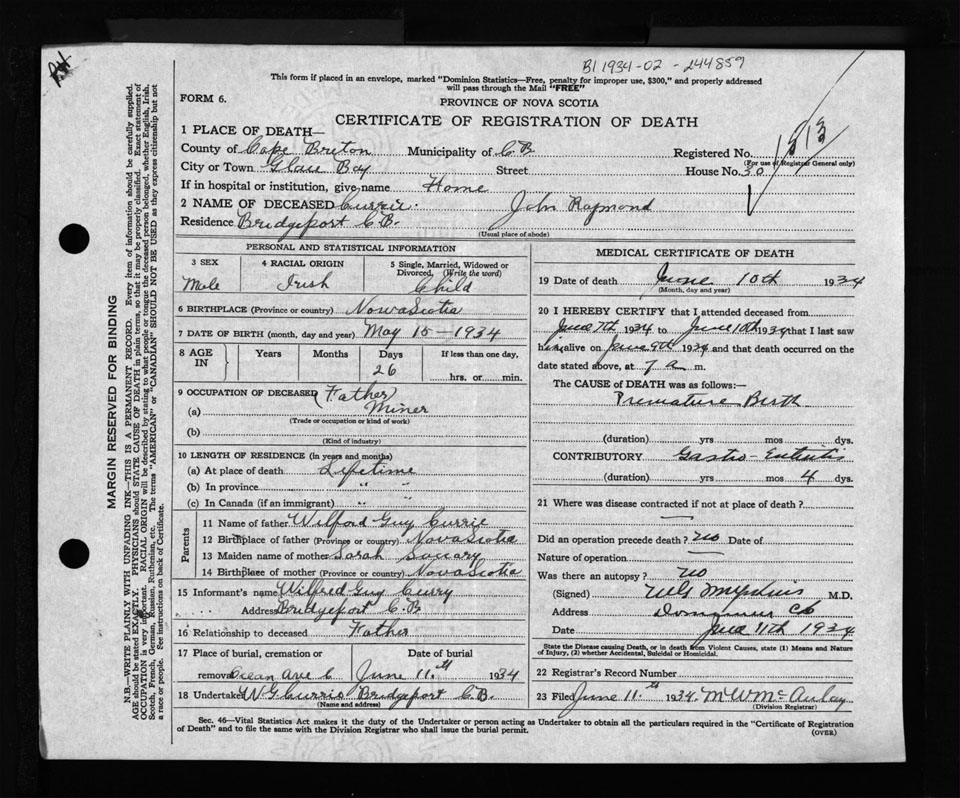 B1 1934-02-244859
This form if placed in an envelope, marked "Dominion Statistics—Free, penalty for improper use, $300," and properly addressed
will pass through the Mail "FREE"
FORM 6.
PROVINCE OF NOVA SCOTIA
CERTIFICATE OF REGISTRATION OF DEATH
1 PLACE OF DEATH—
County of Cape Breton Municipality of C B Registered No. 1313
(For use of Registrar General only)
City or Town Glace Bay Street House No. 30
If in hospital or institution, give name Home
2 NAME OF DECEASED Currie. John Raymond
Residence Bridgeport C.B.
(Usual place of abode)
PERSONAL AND STATISTICAL INFORMATION
3 SEX 4 RACIAL ORIGIN 5 Single, Married, Widowed or
Divorced, (Write the word)
Male Irish Child
6 BIRTHPLACE (Province or country) Nova Scotia
7 DATE OF BIRTH (month, day and year) May 15 - 1934
8 AGE IN Years Months Days If less than one day,
26 hrs. or min.
9 OCCUPATION OF DECEASED (Father)
(a) Miner
(Trade or occupation or kind of work)
(b)
(Kind of industry)
10 LENGTH OF RESIDENCE (in years and months)
(a) At place of death Lifetime
(b) In province " "
(c) In Canada (if an immigrant) " "
Parents
11 Name of father Wilford Guy Currie
12 Birthplace of father (Province or country) Nova Scotia
13 Maiden name of mother Sarah
14 Birthplace of mother (Province or country) Nova Scotia
15 Informant's name Wilfred Guy Curry
Address Bridgeport C.B.
16 Relationship to deceased Father
17 Place of burial, cremation or Date of burial
removal Ocean Ave C June 11th 1934
18 Undertaker W G Currie Bridgeport C.B.
(Name and address)
MEDICAL CERTIFICATE OF DEATH
19 Date of death June 10th 1934
(Month, day and year)
20 I HEREBY CERTIFY that I attended deceased from
June 7th 1934 to June 10th 1934 that I last saw
him alive on June 9th 1934 and that death occurred on the
date stated above, at 7 a m.
The CAUSE of DEATH was as follows:—
Premature Birth
(duration) yrs mos dys.
CONTRIBUTORY Gastro-Enteritis
(duration) yrs mos 4 dys.
21 Where was disease contracted if not at place of death?
Did an operation precede death? no Date of
Nature of operation
Was there an autopsy? no
(Signed) M.D.
Address Dominion CB
Date June 11th 1934
State the Disease causing Death, or in death from Violent Causes, state (1) Means and Nature
of Injury, (2) whether Accidental, Suicidal or Homicidal.
22 Registrar's Record Number
23 Filed June 11th 1934. M W McAulay
(Division Registrar)
Sec. 46—Vital Statistics Act makes it the duty of the Undertaker or person acting as Undertaker to obtain all the particulars required in the "Certificate of Registration
of Death" and to file the same with the Division Registrar who shall issue the burial permit.
(OVER)
MARGIN RESERVED FOR BINDING
N.B.—WRITE PLAINLY WITH UNFADING INK—THIS IS A PERMANENT RECORD. Every item of information should be carefully supplied.
AGE should be stated EXACTLY. PHYSICIANS should STATE CAUSE OF DEATH in plain terms, so that it may be properly classified. Exact statement of
OCCUPATION is very important. RACIAL ORIGIN will be described by stating to what people or tongue the deceased person belonged, whether English, Irish,
Scotch, French, German, Russian, Ruthenian, etc. The terms "AMERICAN" or "CANADIAN" SHOULD NOT BE USED as they express citizenship but not
a race or people. See instructions on back of Certificate.